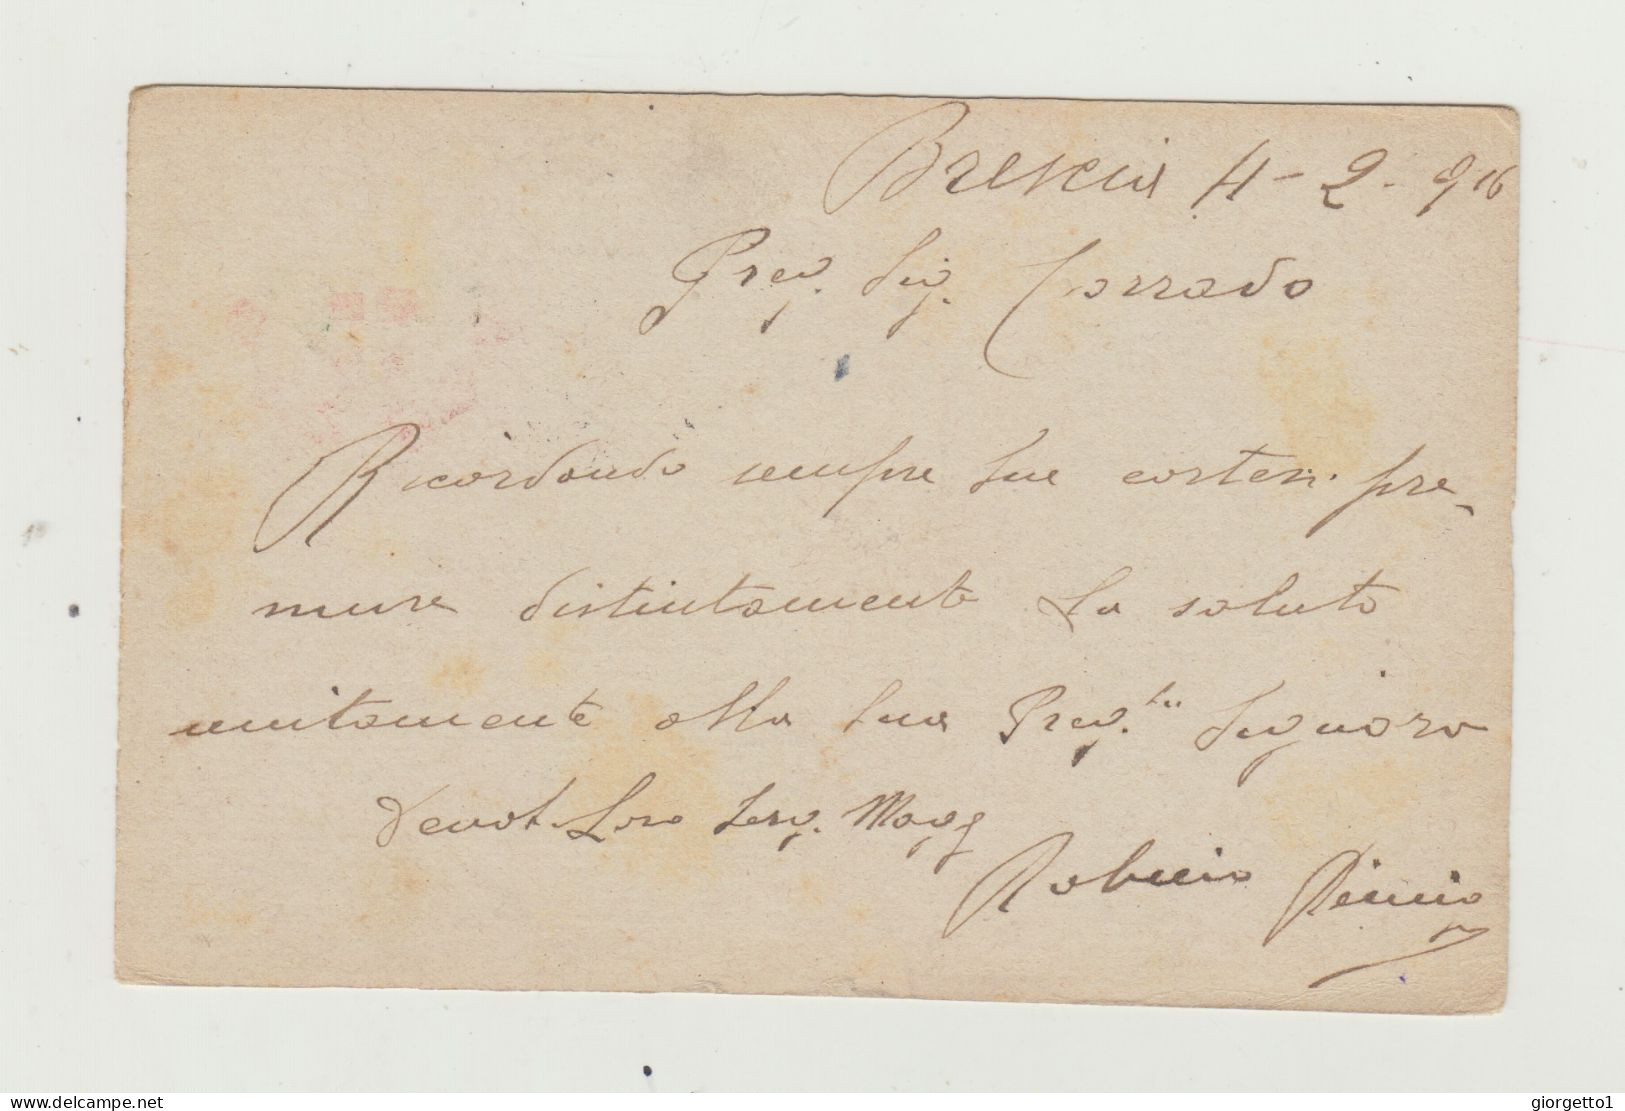 Brescia 4-2-916
Preg. Sig. Corrado
Ricordando sempre Sue cortesi pre-
mure distintamente La saluto
unitamente alla Sua Preg.ma Signora
Devot. Loro Serv. Magg
Plinio
delcampe.net
giorgetto1